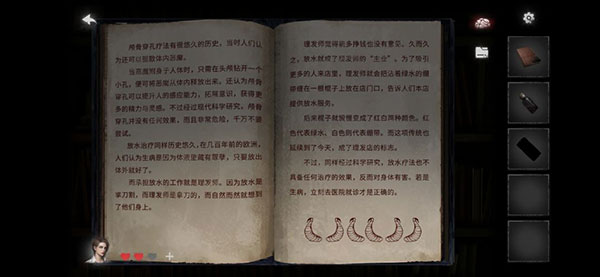 颅骨穿孔疗法有很悠久的历史，当时人们认
为还可以鼓励体内恶魔。
当恶魔附身于人体时，只需在头颅钻开一个
小孔，便可将恶魔从体内释放出来。还认为颅骨
穿孔可以提升人的感应能力，拓展意识，获得更
多的精力与灵感。不过经过现代科学研究，颅骨
穿孔并没有任何效果，而且非常危险，千万不要
尝试。
放水疗法同样历史悠久，在几百年前的欧洲，
人们认为生病原因为体液里藏有罪孽，只要放出
体外就好了。
而承担放水的工作就是理发师。因为放水要
拿刀割，而理发师是拿刀的，而自然而然就想到
了他们身上。
理发师觉得能多挣钱也没有意见。久而久
之，放水就成了理发师的“主业”，为了吸引
更多的人来店里，理发师就会把沾着绿水的绷
带缠在一根棍子上放在店门口，告诉人们本店
提供放水服务。
后来棍子就慢慢变成了红白两种颜色。红
色代表绿水，白色则代表绷带。而这项传统也
延续到了今天，成了理发店的标志。
不过，同样经过科学研究，放水疗法也不
具备任何治疗的效果，反而对身体有害。若是
生病，立刻去医院就诊才是正确的。